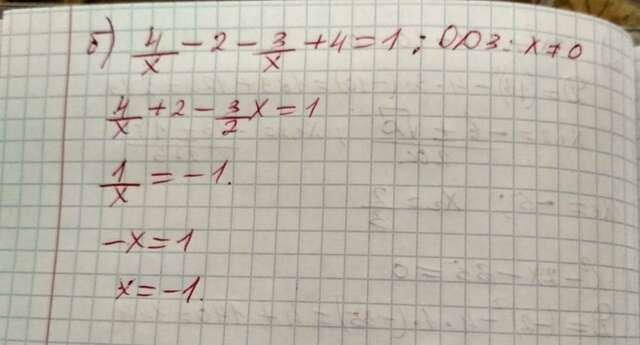 б) 4/x - 2 - 3/x + 4 = 1 ; ОДЗ: x ≠ 0
4/x + 2 - 3/2 x = 1
1/x = -1.
-x = 1
x = -1.